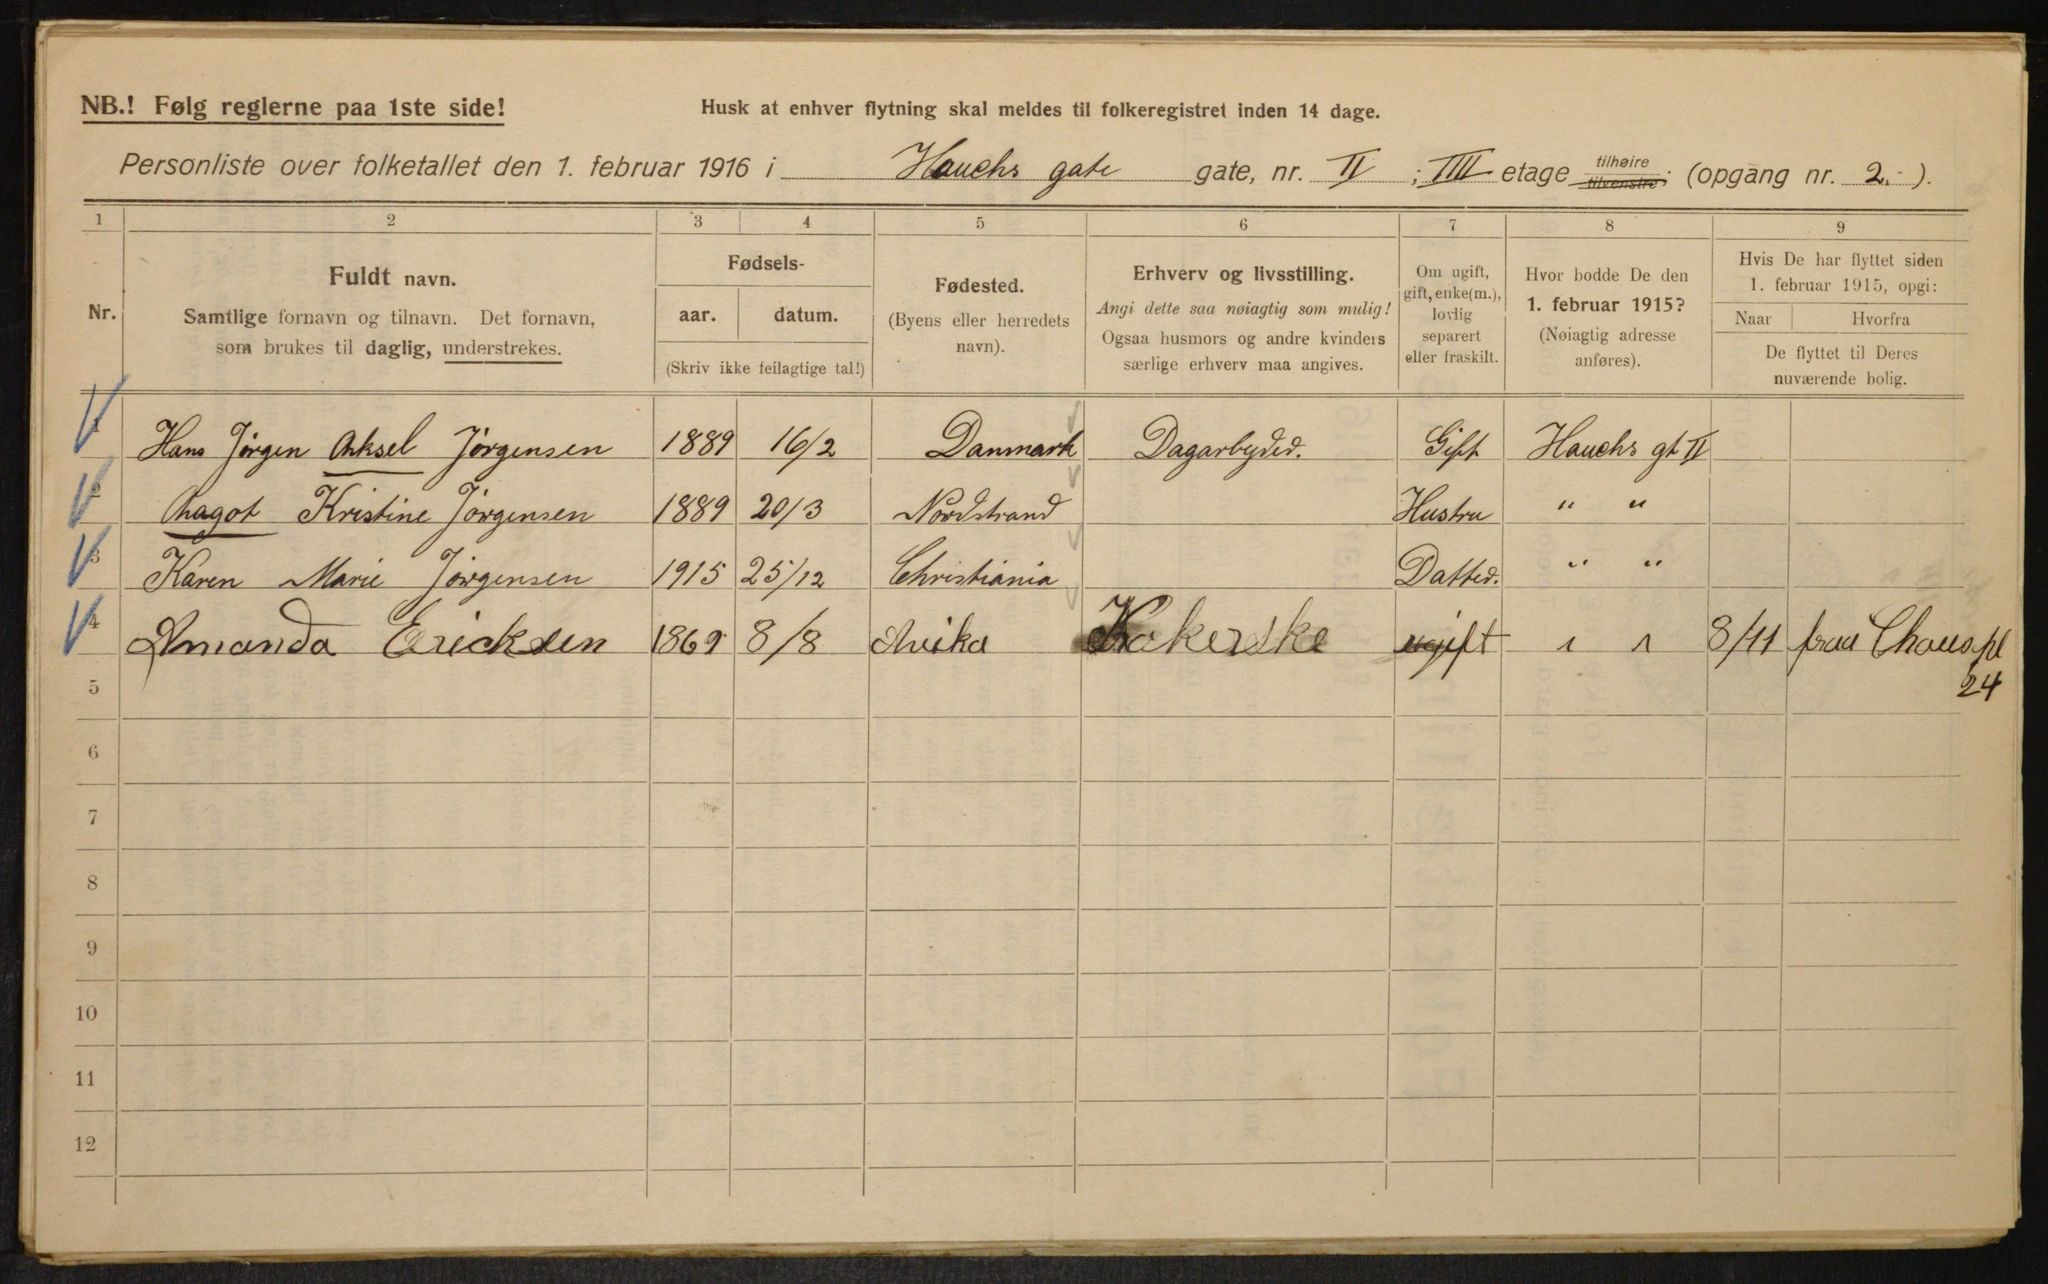 NB.! Følg reglerne paa 1ste side!
Husk at enhver flytning skal meldes til folkeregistret inden 14 dage.
Personliste over folketallet den 1. februar 1916 i Hauchs gate gate, nr. II ; IIII etage tilhøire tilvenstre ; (opgang nr. 2.- ).
1 2 3 4 5 6 7 8 9
Nr.
Fuldt navn.
Samtlige fornavn og tilnavn. Det fornavn,
som brukes til daglig, understrekes.
Fødsels-
aar. datum.
(Skriv ikke feilagtige tal!)
Fødested.
(Byens eller herredets
navn).
Erhverv og livsstilling.
Angi dette saa nøiagtig som mulig!
Ogsaa husmors og andre kvinders
særlige erhverv maa angives.
Om ugift,
gift, enke(m.),
lovlig
separert
eller fraskilt.
Hvor bodde De den
1. februar 1915?
(Nøiagtig adresse
anføres).
Hvis De har flyttet siden
1. februar 1915, opgi:
Naar Hvorfra
De flyttet til Deres
nuværende bolig.
1 Hans Jørgen Aksel Jørgensen 1889 16/2 Danmark Gift Hauchs gt II
2 Kristine Jørgensen 1889 20/3 Nordstrand Hustru " "
3 Karen Marie Jørgensen 1915 25/12 Christiania Datter. " "
4 Amanda Ericksen 1869 8/8 Arvika Kokerske ugift " " 8/11 fraa
24
5
6
7
8
9
10
11
12